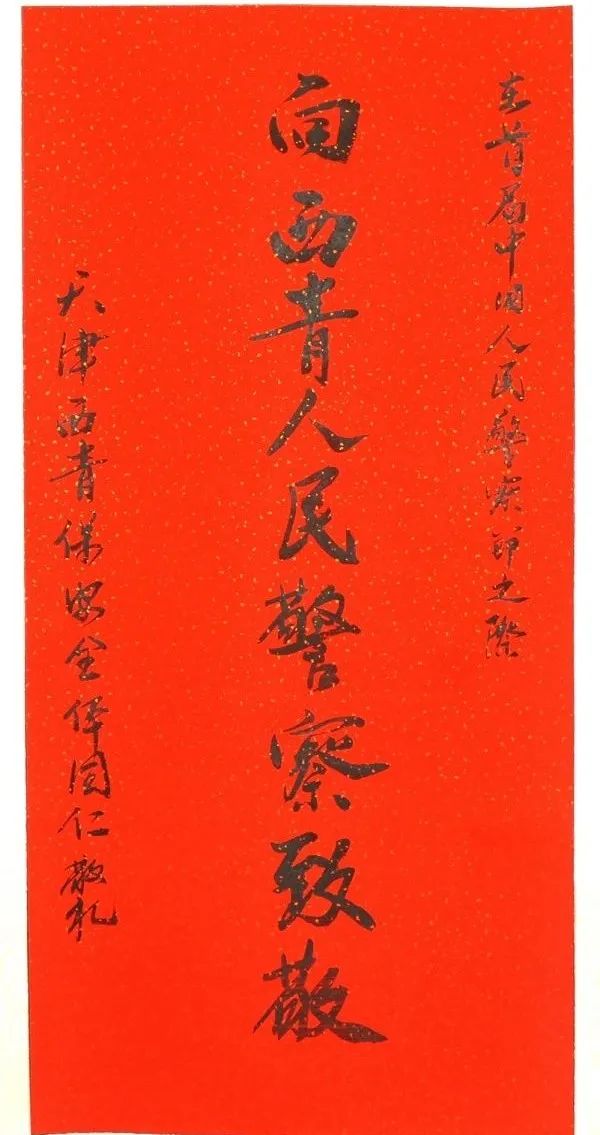 在首届中国人民警察节之际
向西青人民警察致敬
天津西青保安全体同仁敬礼